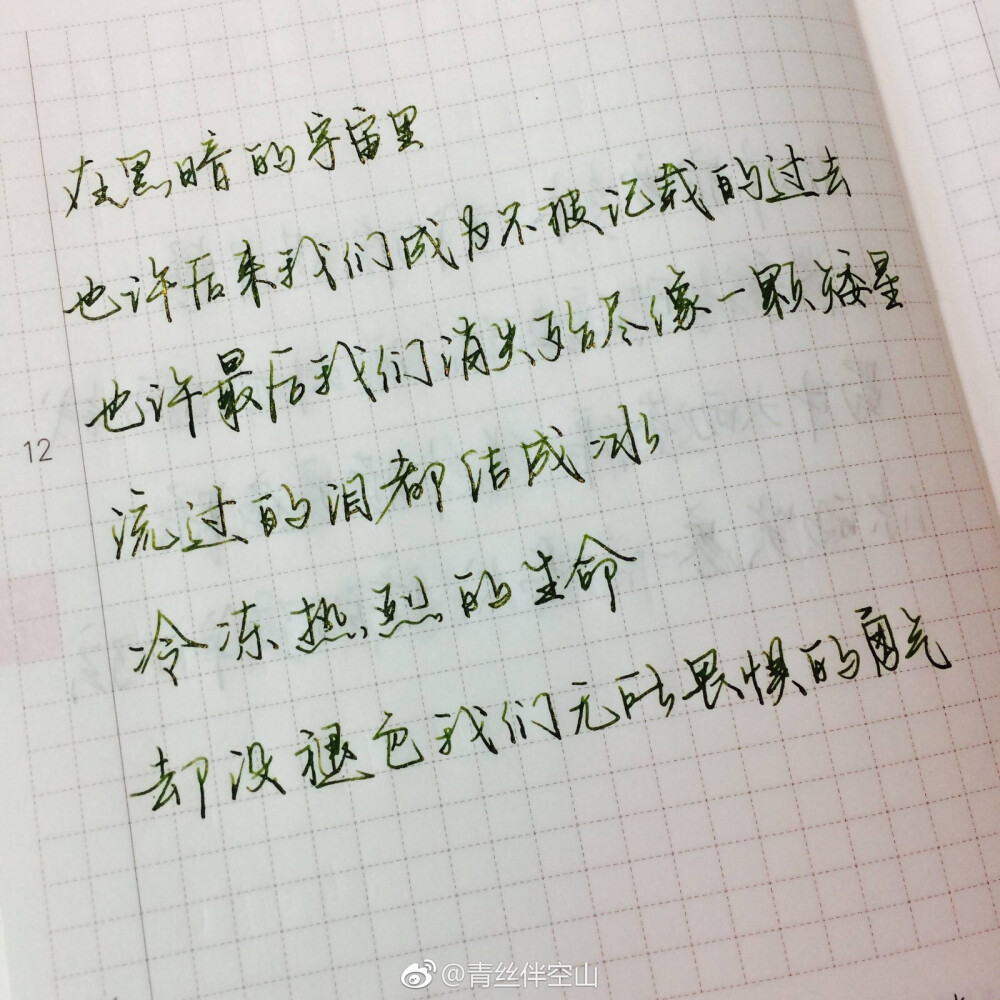 在黑暗的宇宙里
也许后来我们成为不被记载的过去
也许最后我们消失殆尽像一颗矮星
12
流过的泪都结成冰
冷冻热烈的生命
却没褪色我们无所畏惧的勇气
@青丝伴空山